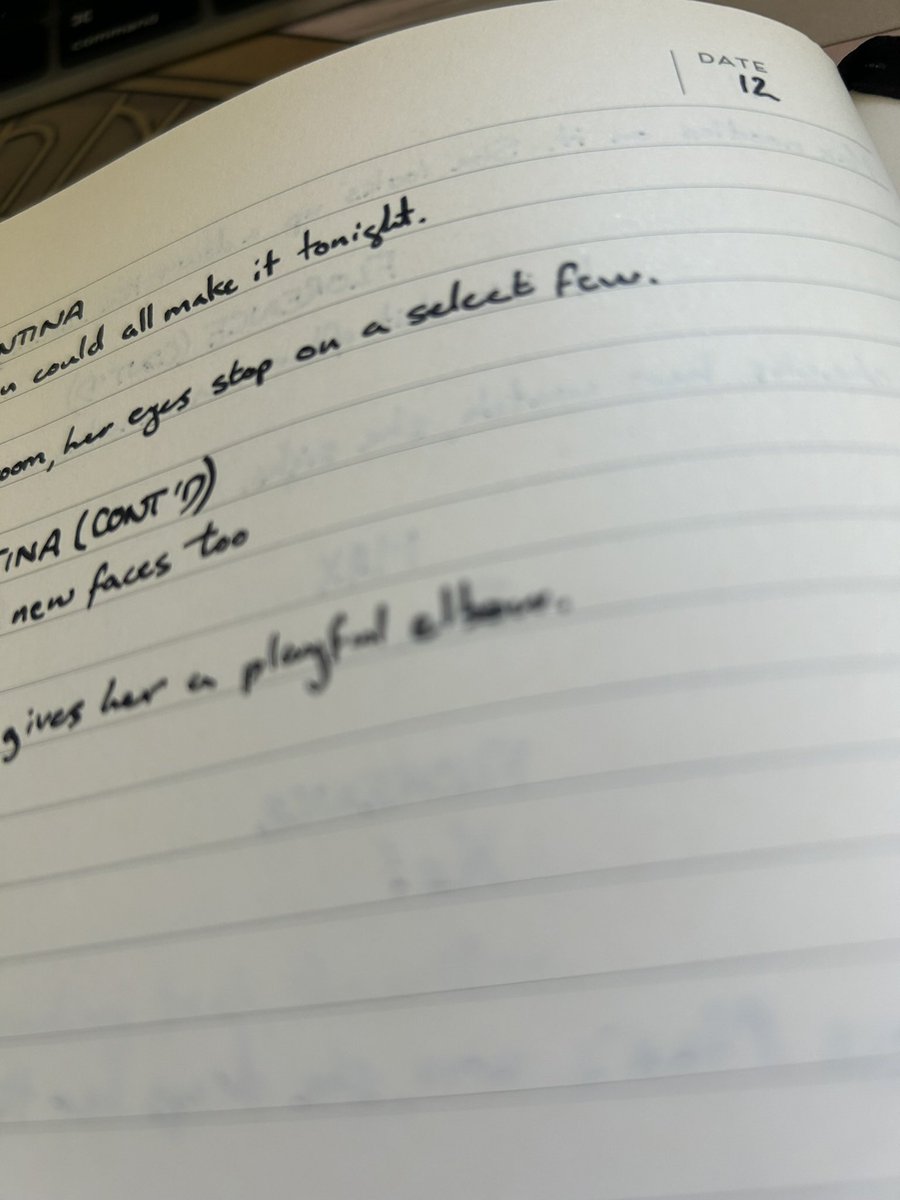 ⌘
command
DATE
12
NTINA
u could all make it tonight.
oom, her eyes stop on a select few.
TINA (CONT'D)
new faces too
gives her a playful elbow.